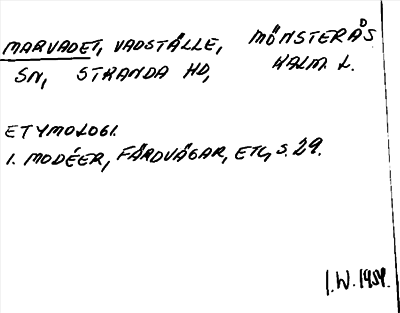 MARVADET, VADSTÄLLE, MÖNSTERÅS
SN, STRANDA HD, KALM. L.
ETYMOLOGI.
I. MODÉER, FÄRDVÄGAR, ETC, S. 29.
I.W. 1954.